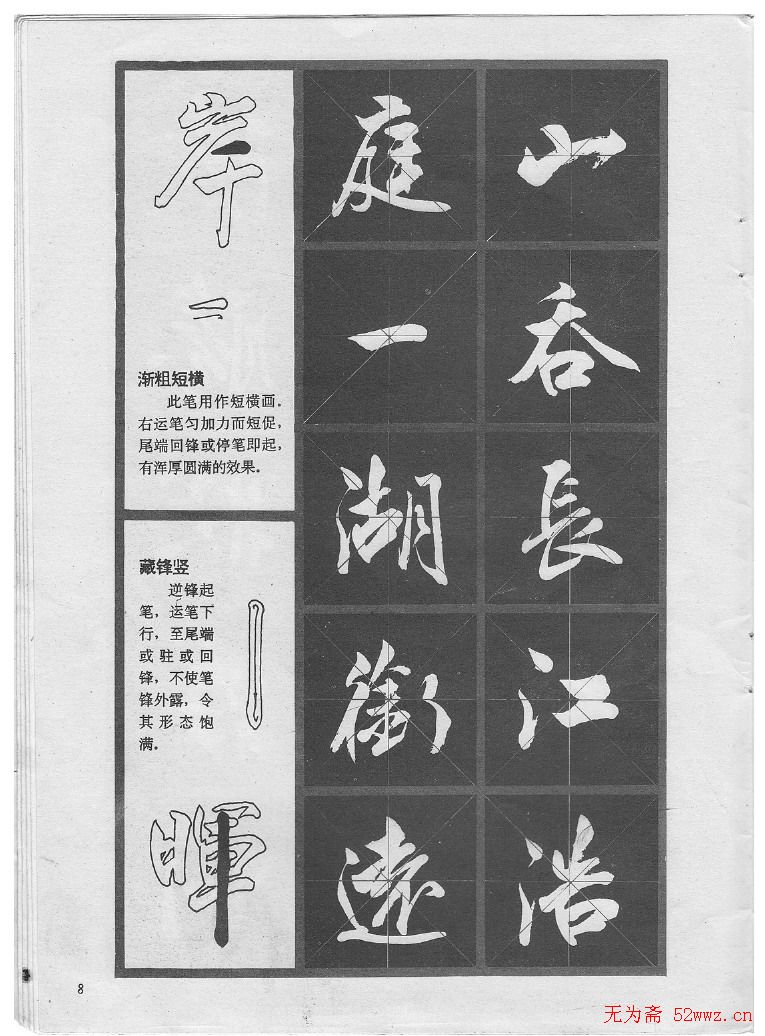 岸
渐粗短横
此笔用作短横画.
右运笔匀加力而短促,
尾端回锋或停笔即起,
有浑厚圆满的效果.
藏锋竖
逆锋起
笔, 运笔下
行, 至尾端
或驻或回
锋, 不使笔
锋外露, 令
其形态饱
满.
暉
庭一湖銜遠
山吞長江浩
8
无为斋 52wwz.cn